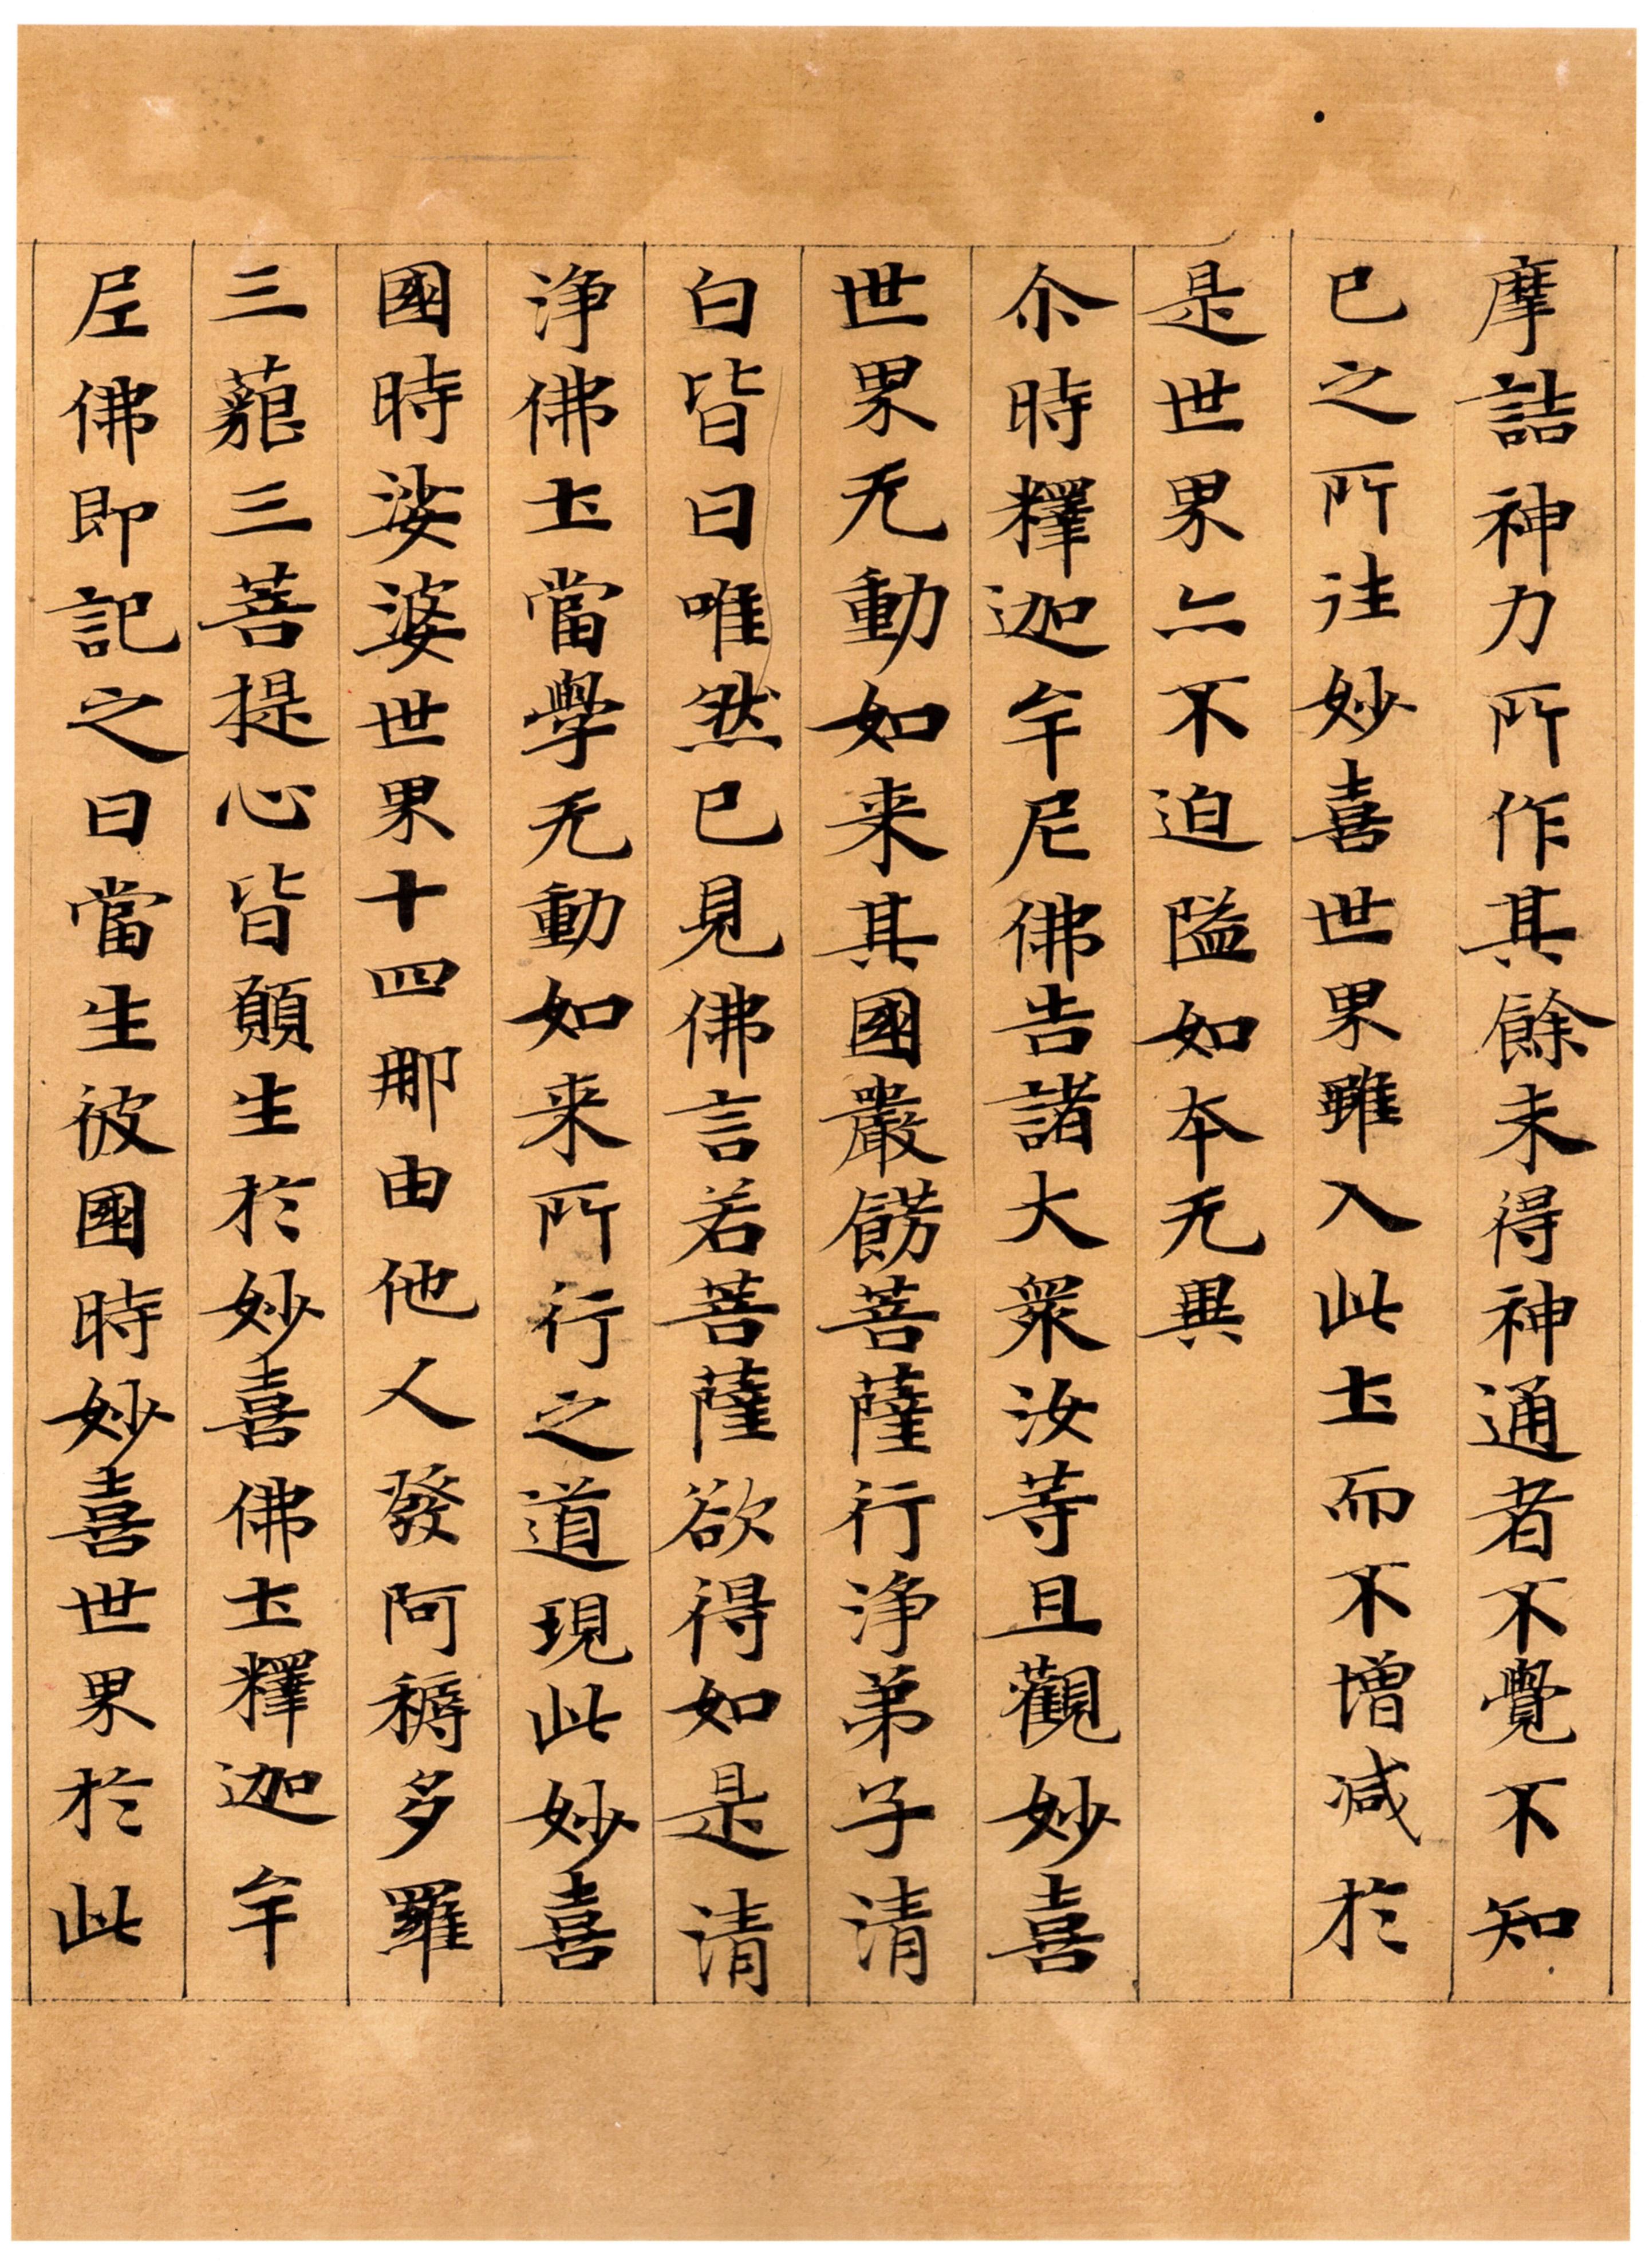 摩詰神力所作其餘未得神通者不覺不知
已之所往妙喜世界雖入此土而不增減於
是世界亦不迫隘如本无異
尒時釋迦牟尼佛告諸大衆汝等且觀妙喜
世界无動如来其國嚴餝菩薩行淨弟子清
白皆曰唯然已見佛言若菩薩欲得如是清
淨佛土當學无動如来所行之道現此妙喜
國時娑婆世界十四那由他人發阿耨多羅
三藐三菩提心皆願生於妙喜佛土釋迦牟
尼佛即記之曰當生彼國時妙喜世界於此